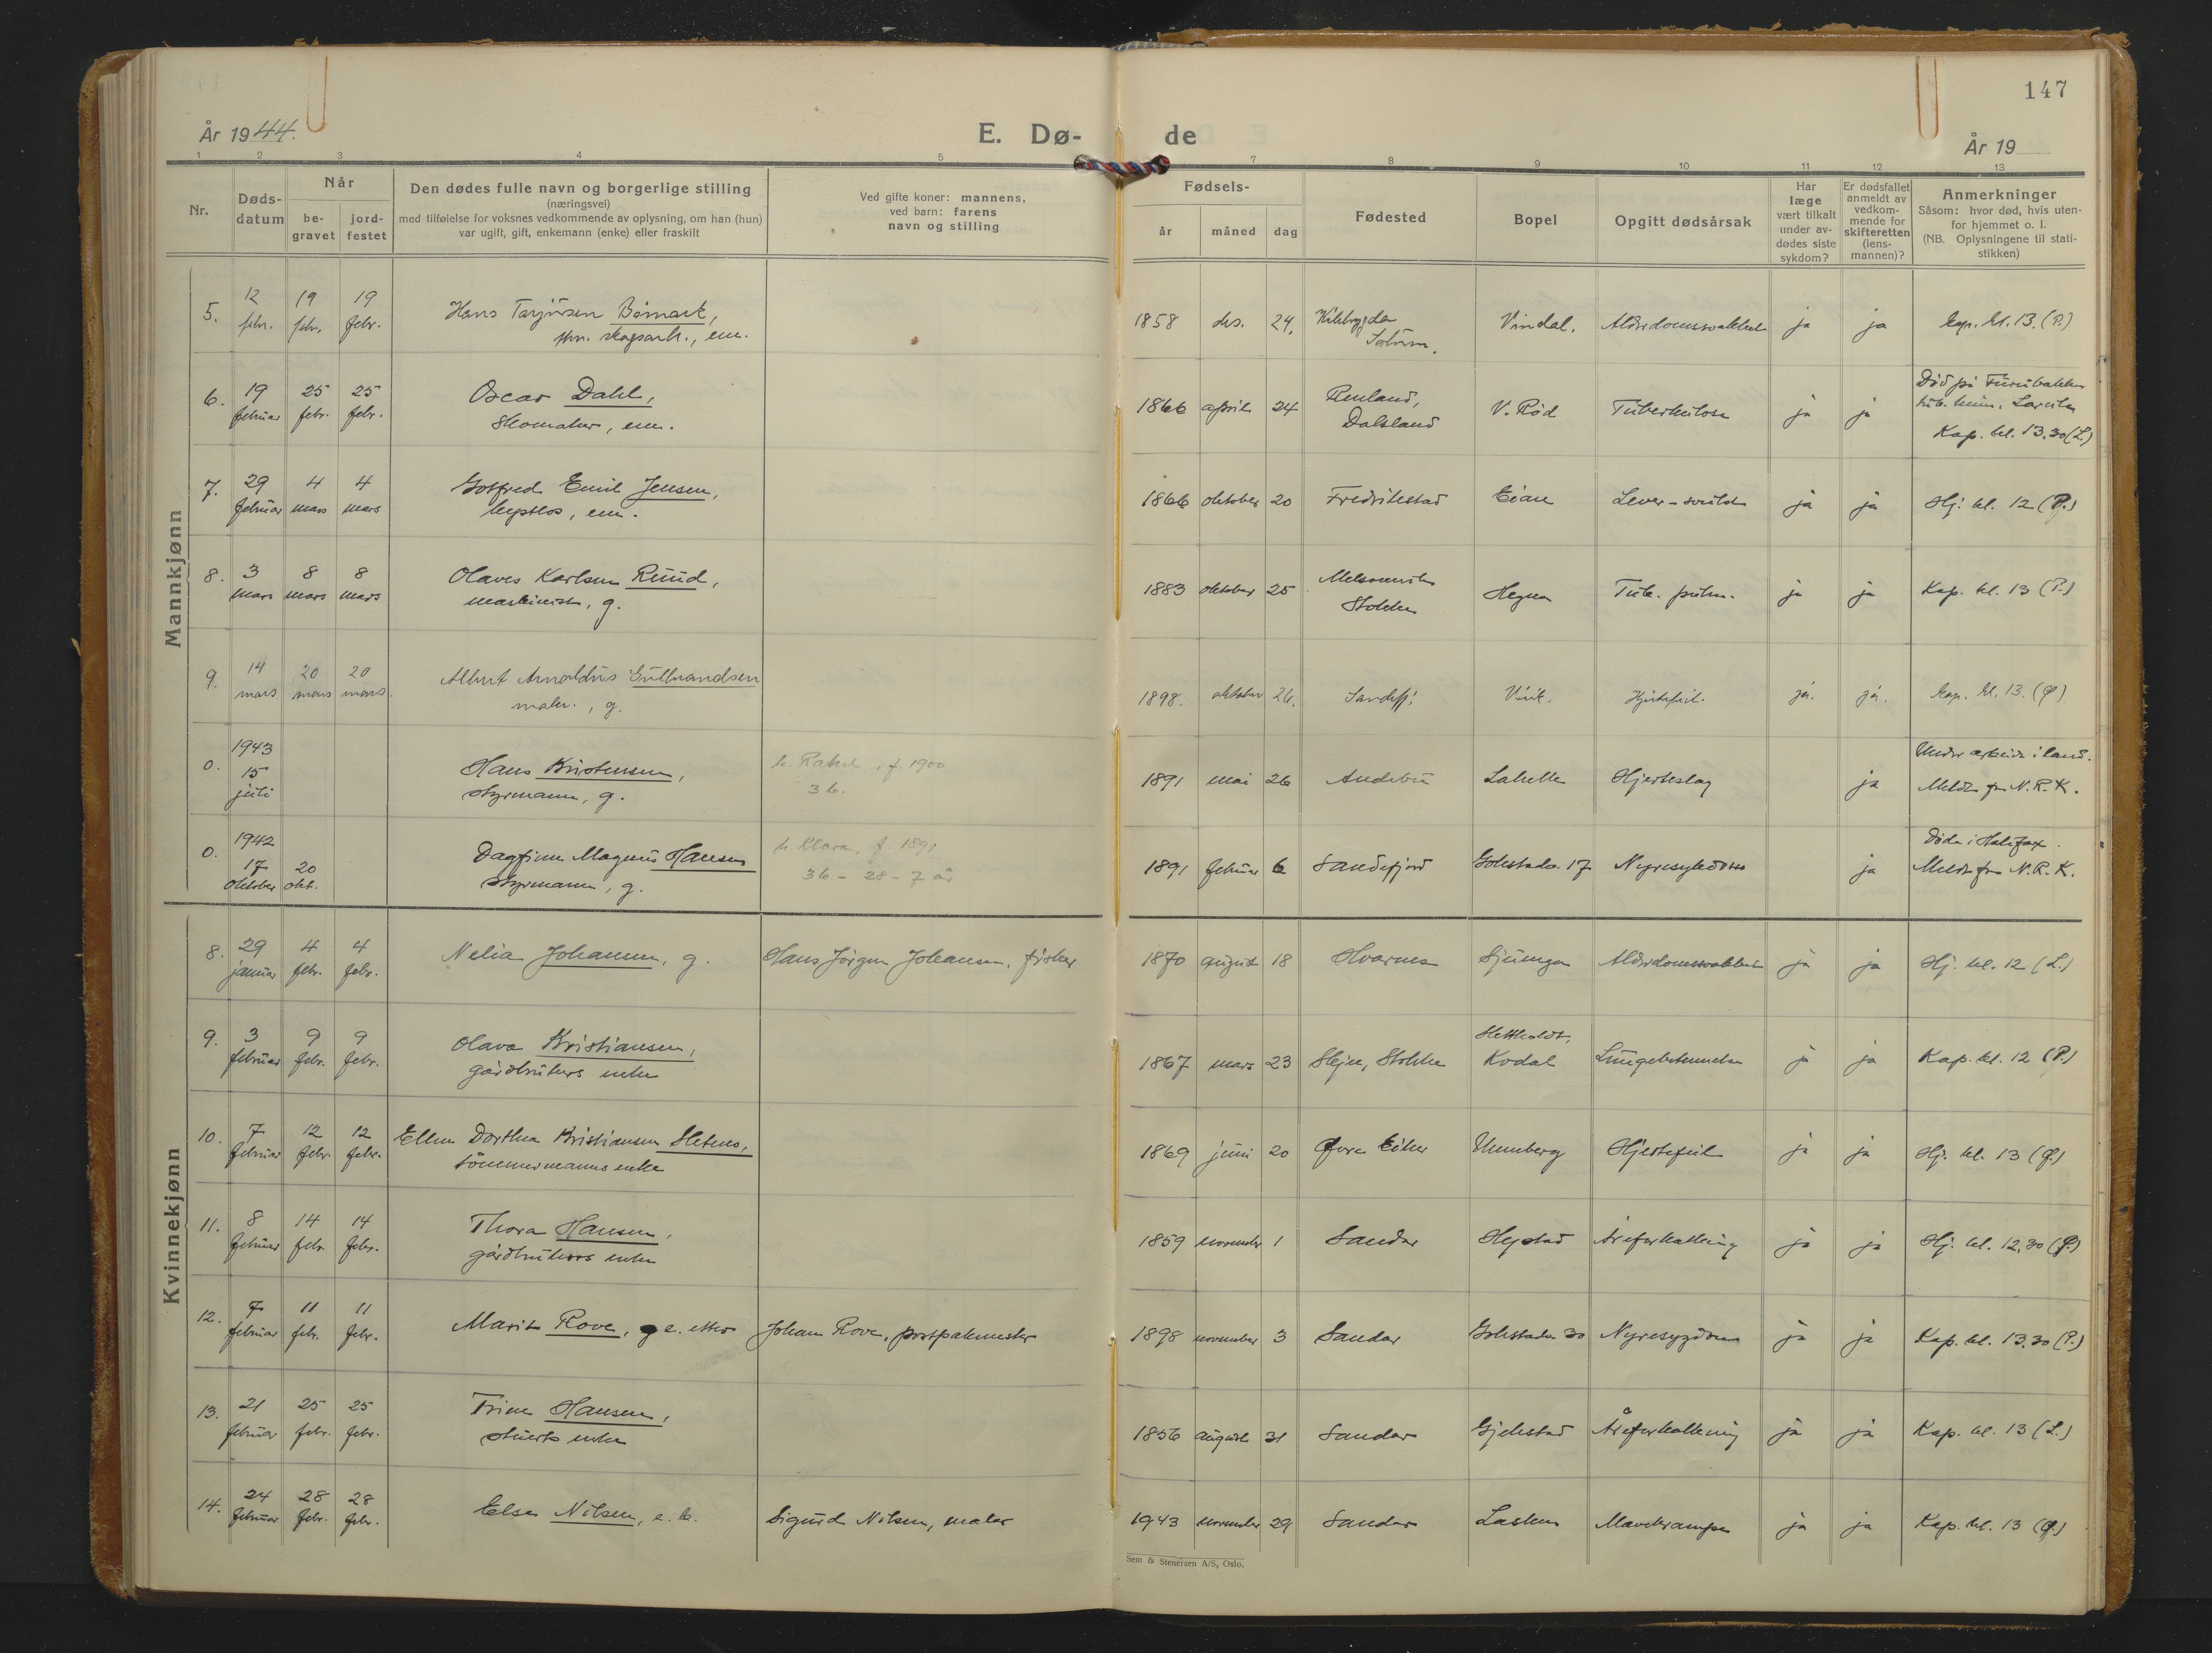 147
År 1944.
E. Dø-
de
År 19
1 2 3 4 5 7 8 9 10 11 12 13
Nr.
Døds-
datum
Når
be-
gravet
jord-
festet
Den dødes fulle navn og borgerlige stilling
(næringsvei)
med tilføielse for voksnes vedkommende av oplysning, om han (hun)
var ugift, gift, enkemann (enke) eller fraskilt
Ved gifte koner: mannens,
ved barn: farens
navn og stilling
Fødsels-
år måned dag
Fødested
Bopel
Opgitt dødsårsak
Har
læge
vært tilkalt
under av-
dødes siste
sykdom?
Er dødsfallet
anmeldt av
vedkom-
mende for
skifteretten
(lens-
mannen)?
Anmerkninger
Såsom: hvor død, hvis uten-
for hjemmet o. l.
(NB. Oplysningene til stati-
stikken)
Mannkjønn
5. 12 febr. 19 febr. 19 febr. Hans Tarjersen Bömark, 1858 des. 24. Vindal. Alderdomssvakhet ja ja Kap. kl. 13. (P.)
skogsarb., em.
6. 19 februar 25 febr. 25 febr. Oscar Dahl, 1866 april 24 V. Röd Tuberkulose ja ja Död på Furubakken
Skomaker, em. Dalsland tub. heim. Larvik
Kap. kl. 13.30 (L.)
7. 29 februar 4 mars 4 mars Gotfred Emil Jensen, 1866 oktober 20 Fredrikstad Eian Lever-svulst ja ja Hj. kl. 12 (P.)
løpslos, em.
8. 3 mars 8 mars 8 mars Olaves Karlsen Ruud, 1883 oktober 25 Melsomvik Stokke Hegna Tub. pulm. ja ja Kap. kl. 13 (P.)
maskinist, g.
9. 14 mars 20 mars 20 mars. Albert Arnoldus Gulbrandsen 1898. oktober 26. Sandefj. Virik. Hjertefeil. ja. ja. Kap. kl. 13. (Ø)
maler., g.
0. 1943 15 juli Hans Kristensen, h. Rakel, f. 1900 1891 mai 26 Andebu Lahelle Hjerteslag ja Under arbeide i land.
styrmann, g. 3 b. Meldt fra N.R.K.
0. 1942 17 oktober 20 okt. Dagfinn Magnus Hansen h. Klara, f. 1891 1891 februar 6 Sandefjord Gokstadv. 17 Nyresykdom ja Döde i Halifax.
styrmann, g. 3 b - 28 - 7 år Meldt fra N.R.K.
Kvinnekjønn
8. 29 januar 4 febr. 4 febr. Nelia Johansen, g. Hans Jörgen Johansen, fisker 1870 august 18 Hvarnes Alderdomssvakhet ja ja Hj. kl. 12 (L.)
9. 3 februar 9 febr. 9 febr. Olava Kristiansen, 1867 mars 23 Skjee, Stokke Kodal Lungebetennelse ja ja Kap. kl. 12 (P.)
gårdbrukers enke
10. 7 februar 12 febr. 12 febr. Ellen Dorthea Kristiansen Hetnes, 1869 juni 20 Øvre Eiker Unneberg Hjertefeil ja ja Hj. kl. 13 (Ø.)
tömmermanns enke
11. 8 februar 14 febr. 14 febr. Thora Hansen, 1859 november 1 Sandar Hystad Åreforkalkning ja ja Hj. kl. 12,30 (Ø.)
gårdbrukers enke
12. 7 februar 11 febr. 11 febr. Marit Rove, g e. etter Johan Rove, postpakmester 1898 november 3 Sandar Gokstadv 30 Nyresygdom ja ja Kap. kl. 13.30 (P.)
13. 21 februar 25 febr. 25 febr. Trine Hansen, 1856 august 31 Sandar Gjekstad Åreforkalkning ja ja Kap. kl. 13 (L.)
stuerts enke
14. 24 februar 28 febr. 28 febr. Else Nilsen, e. b. Sigurd Nilsen, maler 1943 november 29 Sandar Lasken Mavekrampe ja ja Kap. kl. 13 (Ø.)
Sem & Stenersen A/S, Oslo.